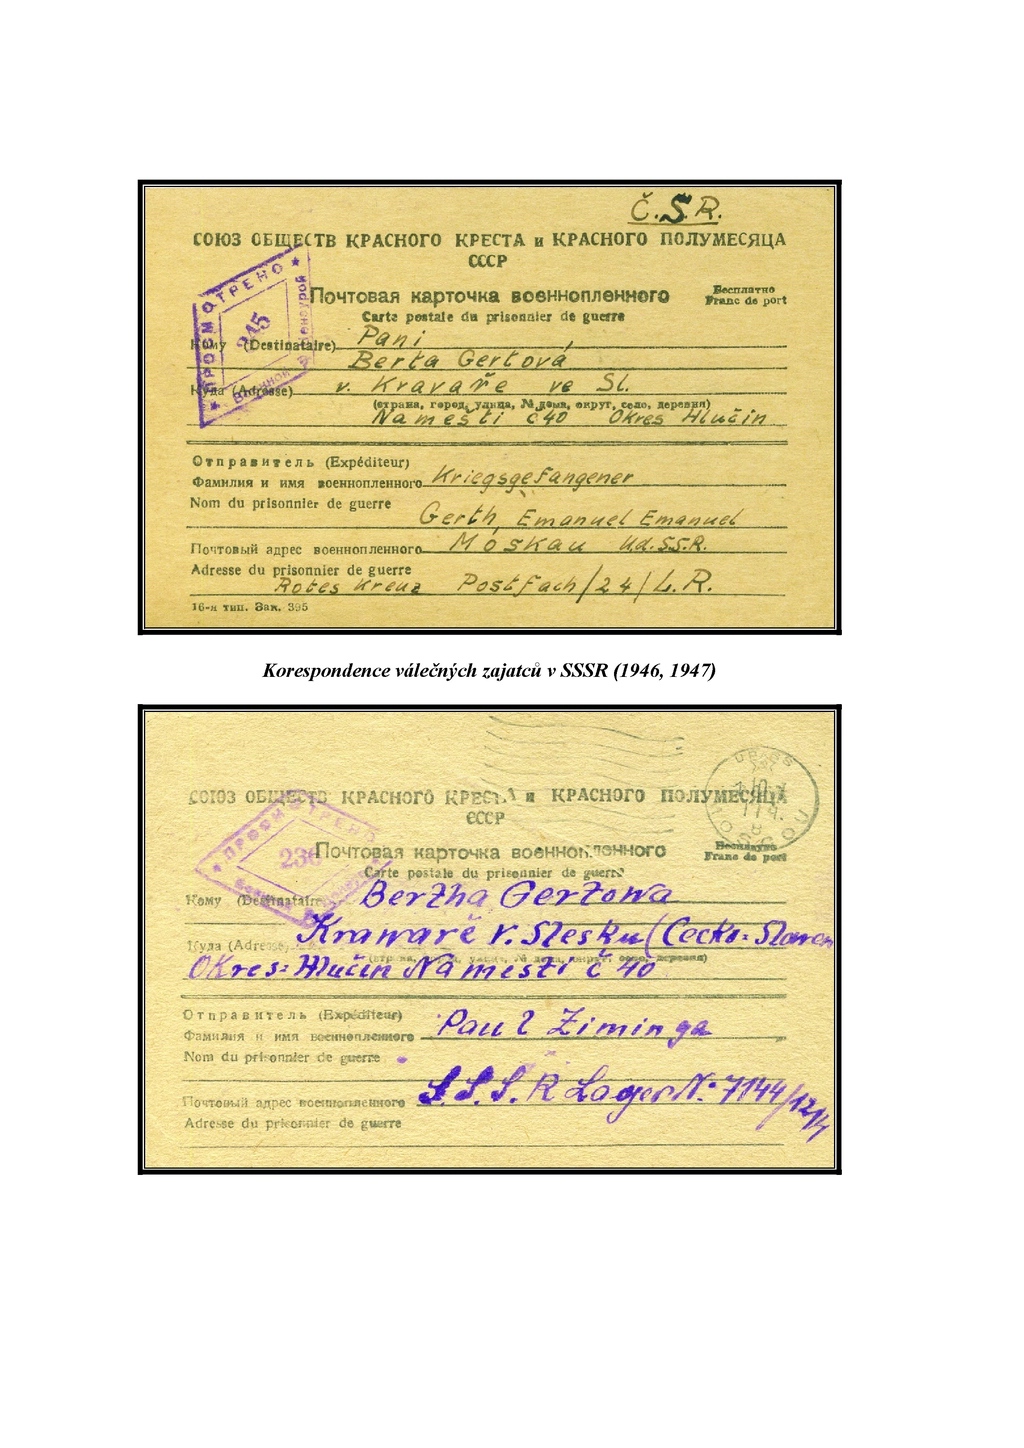 Č.S.R.
СОЮЗ ОБЩЕСТВ КРАСНОГО КРЕСТА и КРАСНОГО ПОЛУМЕСЯЦА
СССР
ПРОСМОТРЕНО
Военной Цензурой
Почтовая карточка военнопленного
Бесплатно
Franc de port
Carte postale du prisonnier de guerre
Кому (Destinataire) Pani
Berta Gertová
Куда (Adresse) v. Kravaře ve Sl.
(страна, город, улица, № дома, округ, село, деревня)
Naměsti č40 Okres Hlučin
Отправитель (Expéditeur)
Фамилия и имя военнопленного Kriegsgefangener
Nom du prisonnier de guerre
Gerth, Emanuel Emanuel
Почтовый адрес военнопленного Moskau U.d.SS.R.
Adresse du prisonnier de guerre
Rotes Kreuz Postfach/24/L.R.
16-я тип. Зак. 395
Korespondence válečných zajatců v SSSR (1946, 1947)
СОЮЗ ОБЩЕСТВ КРАСНОГО КРЕСТА и КРАСНОГО ПОЛУМЕСЯЦА
СССР
ПРОСМОТРЕНО
Почтовая карточка военнопленного
Бесплатно
Franc de port
Carte postale du prisonnier de guerre
Кому (Destinataire) Bertha Gertowa
Куда (Adresse) Krawařě V. Slesku (Cecko=Slowen
(страна, город, улица, № дома, округ, село, деревня)
Okres=Hlučin Náměsti č 40
Отправитель (Expéditeur)
Фамилия и имя военнопленного Paul Ziminga
Nom du prisonnier de guerre
Почтовый адрес военнопленного S.S.S.R Lager N: 7144/
Adresse du prisonnier de guerre